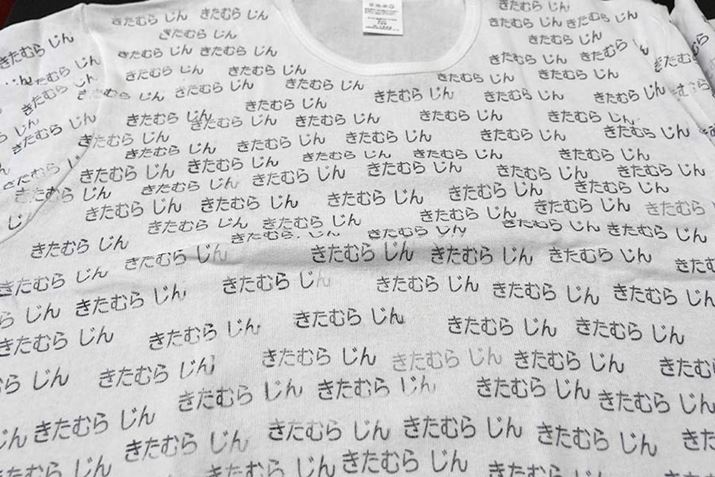 きたむら じん きたむら じん きたむら じん きたむら じん
きたむら じん きたむら じん
きたむら じん きたむら じん きたむら じん きたむら じん
きたむら じん きたむら じん きたむら じん きたむら じん きたむら じん
きたむら じん きたむら じん きたむら じん きたむら じん きたむら じん
きたむら じん きたむら じん きたむら じん
きたむら じん きたむら じん きたむら じん きたむら じん きたむら じん
きたむら じん きたむら じん きたむら じん きたむら じん きたむら じん
きたむら じん きたむら じん きたむら じん きたむら じん きたむら じん きたむら じん
きたむら じん きたむら じん きたむら じん きたむら じん きたむら じん
きたむら じん きたむら じん きたむら じん きたむら じん きたむら じん
きたむら じん きたむら じん きたむら じん きたむら じん きたむら じん
きたむら じん きたむら じん きたむら じん きたむら じん きたむら じん
きたむら じん きたむら じん きたむら じん きたむら じん きたむら じん
きたむら じん きたむら じん きたむら じん きたむら じん
きたむら じん きたむら じん きたむら じん きたむら じん
きたむら じん きたむら じん きたむら じん きたむら じん
きたむら じん きたむら じん きたむら じん きたむら じん
きたむら じん きたむら じん